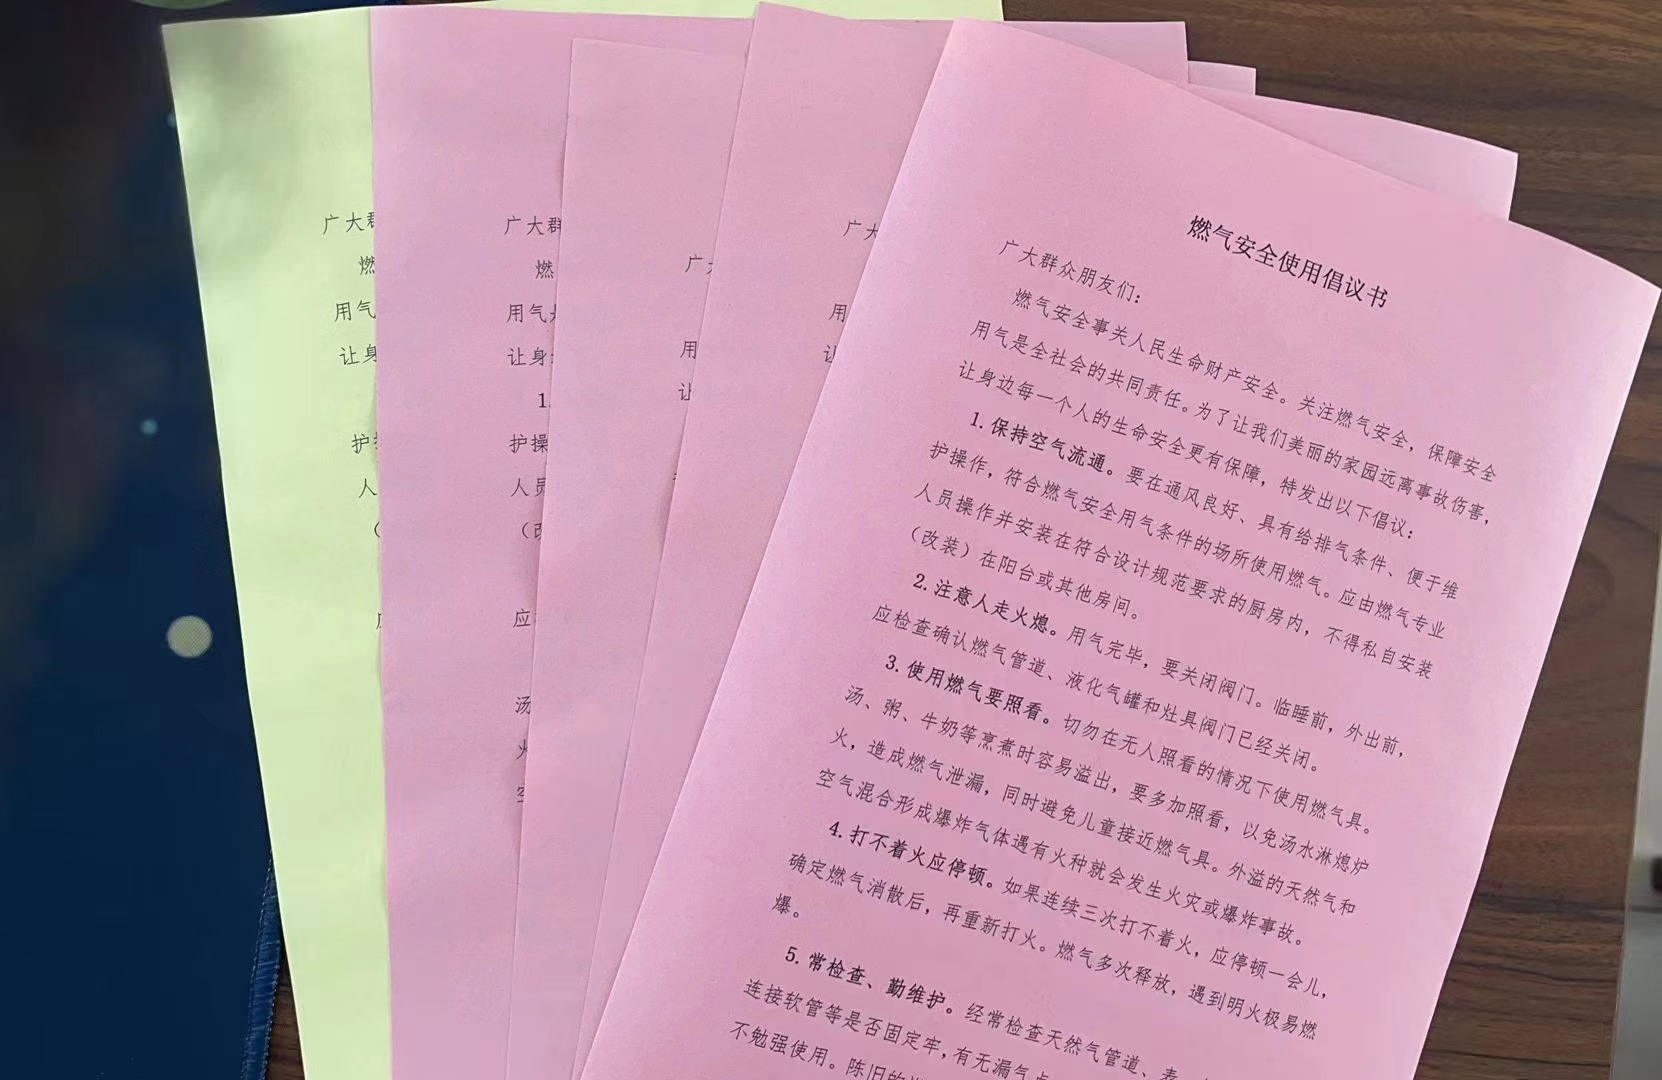 燃气安全使用倡议书
广大群众朋友们：
燃气安全事关人民生命财产安全。关注燃气安全，保障安全
用气是全社会的共同责任。为了让我们美丽的家园远离事故伤害，
让身边每一个人的生命安全更有保障，特发出以下倡议：
1.保持空气流通。要在通风良好、具有给排气条件、便于维
护操作，符合燃气安全用气条件的场所使用燃气。应由燃气专业
人员操作并安装在符合设计规范要求的厨房内，不得私自安装
（改装）在阳台或其他房间。
2.注意人走火熄。用气完毕，要关闭阀门。临睡前，外出前，
应检查确认燃气管道、液化气罐和灶具阀门已经关闭。
3.使用燃气要照看。切勿在无人照看的情况下使用燃气具。
汤、粥、牛奶等烹煮时容易溢出，要多加照看，以免汤水淋熄炉
火，造成燃气泄漏，同时避免儿童接近燃气具。外溢的天然气和
空气混合形成爆炸气体遇有火种就会发生火灾或爆炸事故。
4.打不着火应停顿。如果连续三次打不着火，应停顿一会儿，
确定燃气消散后，再重新打火。燃气多次释放，遇到明火极易燃
爆。
5.常检查、勤维护。经常检查天然气管道、表、
连接软管等是否固定牢，有无漏气
不勉强使用。陈旧的
广大群
燃
用气
让身
护
人
（
广大群
燃
用气
让身
1.
护操
人员
（
应
汤
火
空
广
用
让
广大
用
让